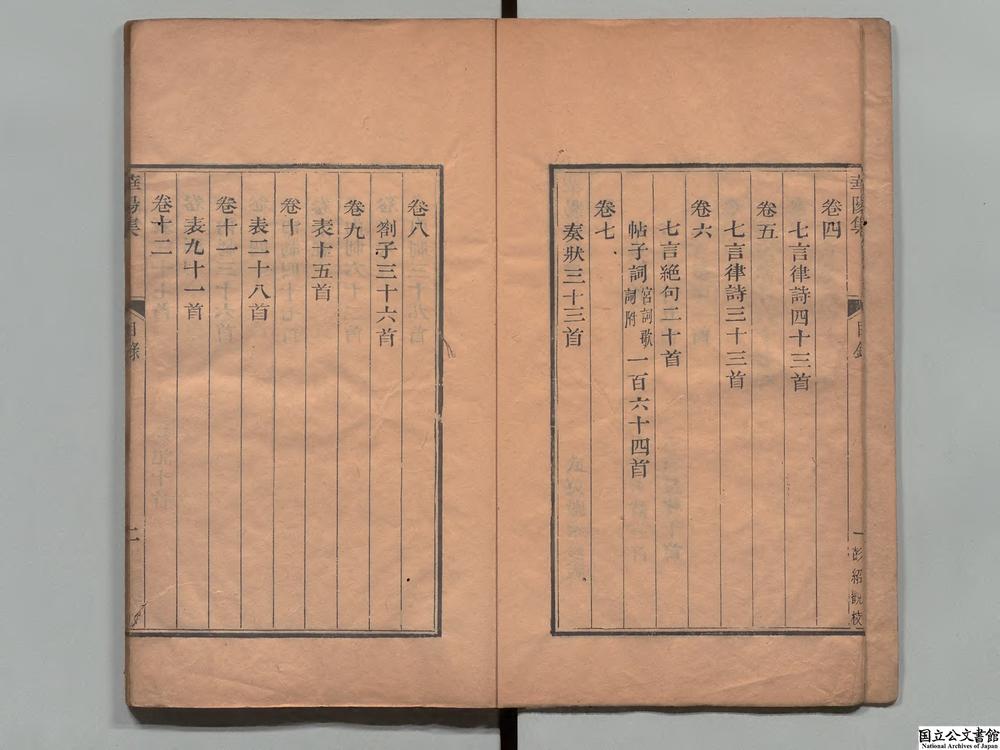 華陽集
目錄
一
彭紹觀校
卷四
七言律詩四十三首
卷五
七言律詩三十三首
卷六
七言絕句二十首
帖子詞宮詞歌詞附一百六十四首
卷七
奏狀三十三首
卷八
劄子三十六首
卷九
表十五首
卷十
表二十八首
卷十一
表九十一首
卷十二
華陽集
目錄
二
国立公文書館
National Archives of Japan